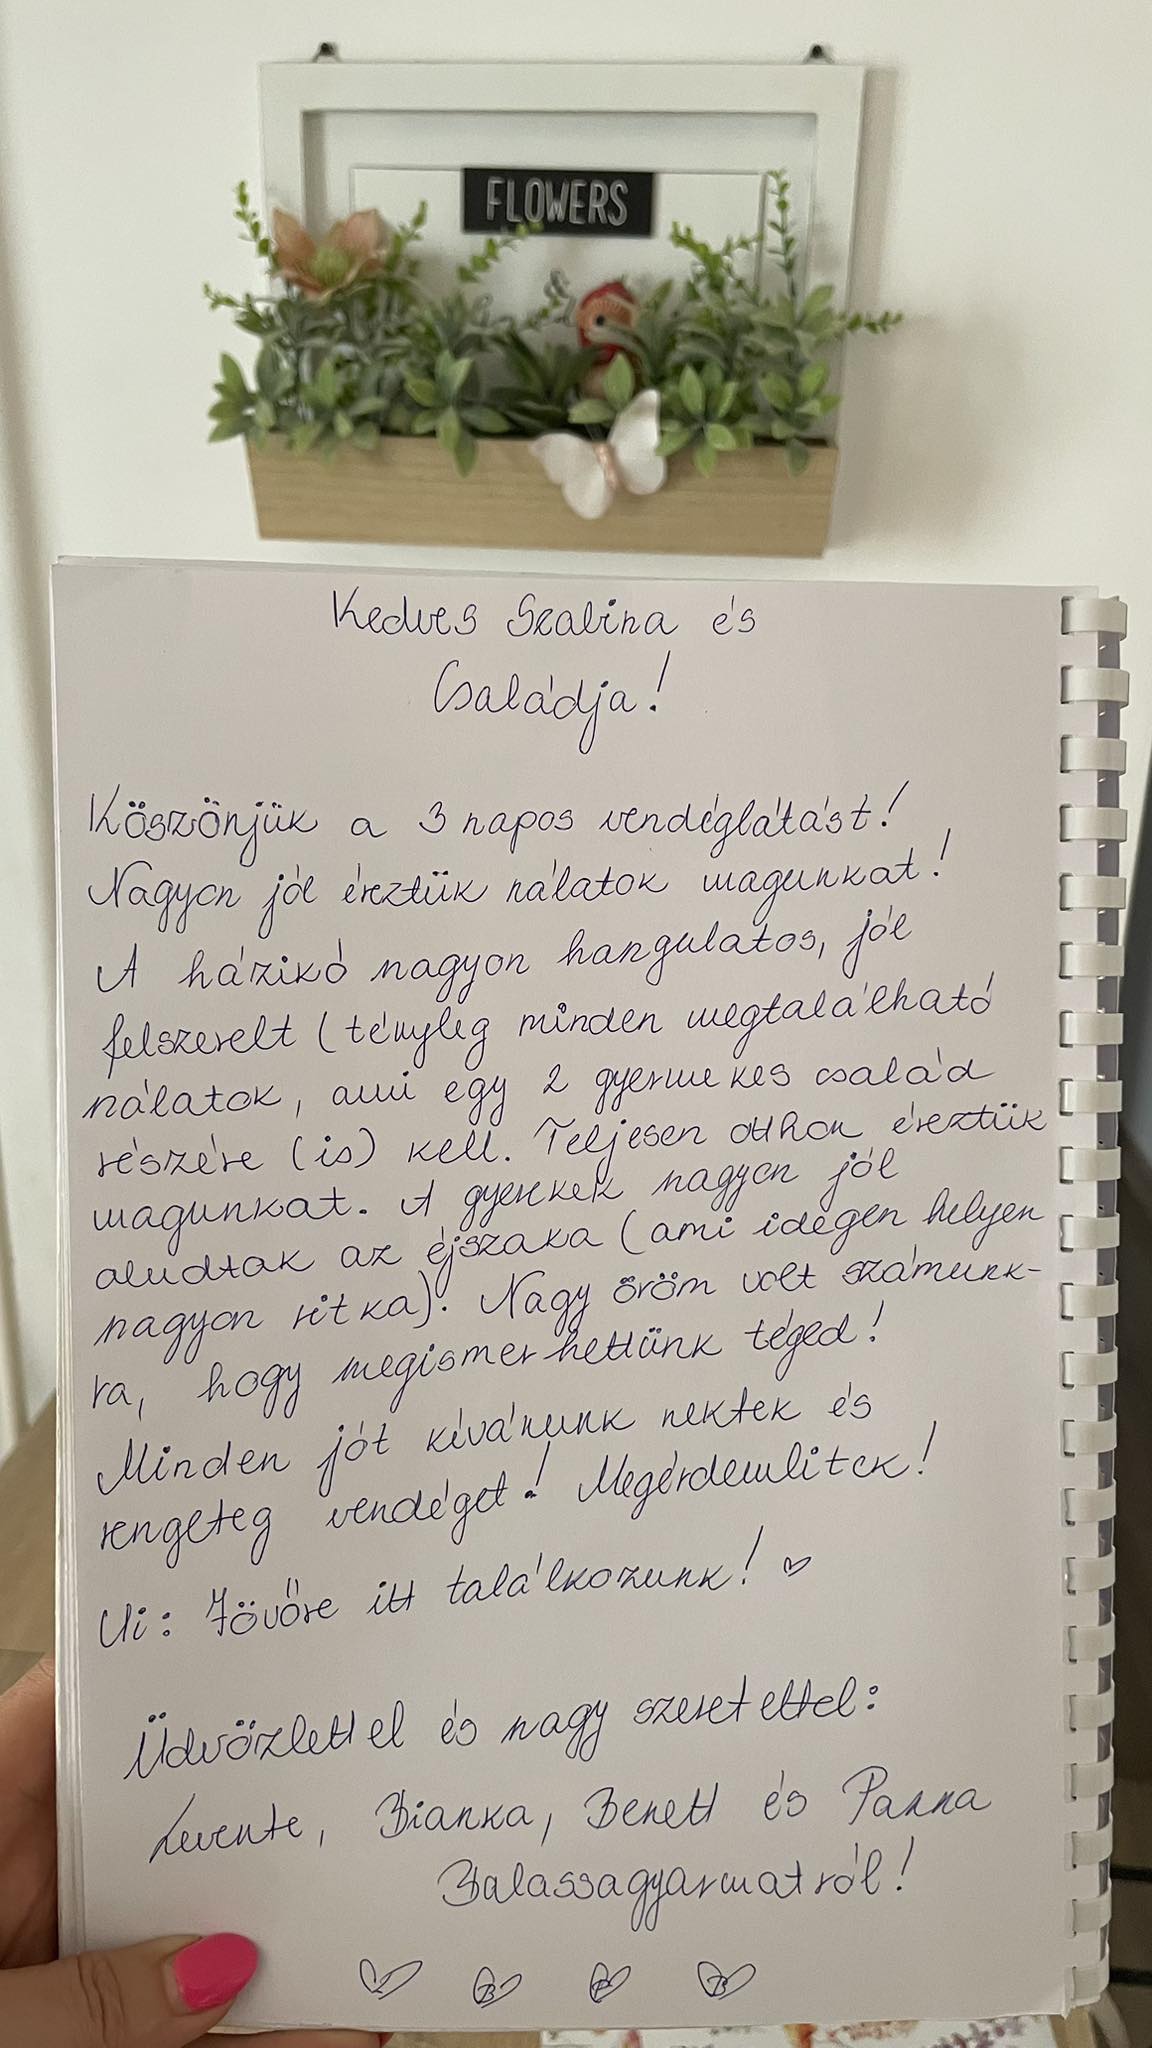 FLOWERS
Kedves Szabina és
Családja!
Köszönjük a 3 napos vendéglátást!
Nagyon jól éreztük nálatok magunkat!
A házikó nagyon hangulatos, jól
felszerelt (tényleg minden megtalálható
nálatok, ami egy 2 gyermekes család
részére (is) kell. Teljesen otthon éreztük
magunkat. A gyerekek nagyon jól
aludtak az éjszaka (ami idegen helyen
nagyon ritka). Nagy öröm volt számunk-
ra, hogy megismerhettünk téged!
Minden jót kívánunk nektek és
rengeteg vendéget! Megérdemlitek!
Ui: Jövőre itt találkozunk!
Üdvözlettel és nagy szeretettel:
Levente, Bianka, Benett és Panna
Balassagyarmatról!
L B P B